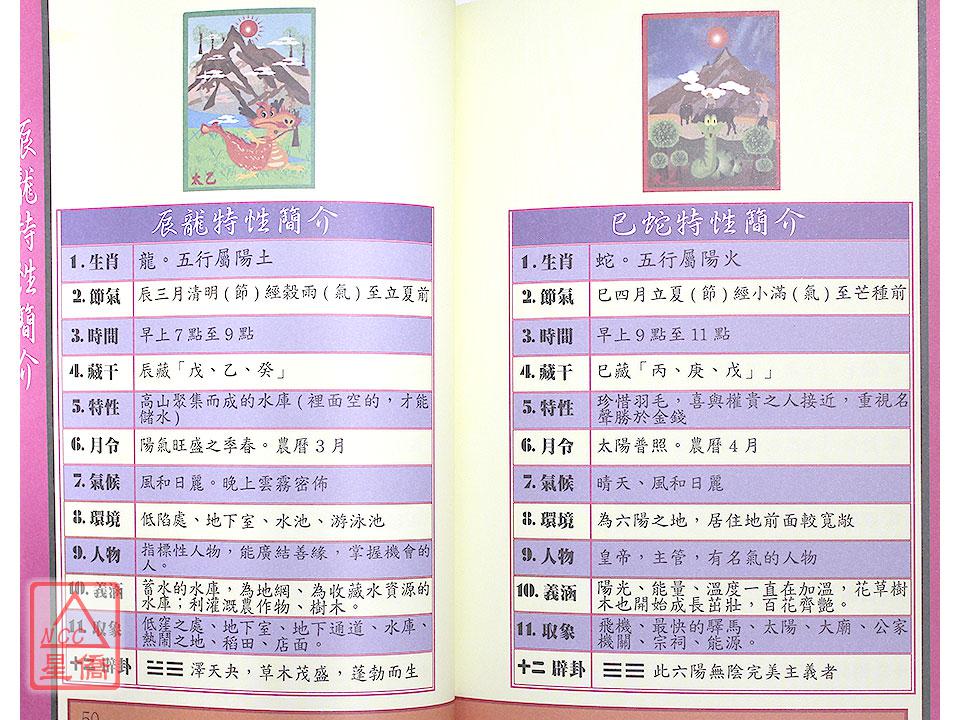 辰龍特性簡介
太乙
辰龍特性簡介
1.生肖 龍。五行屬陽土
2.節氣 辰三月清明(節)經穀雨(氣)至立夏前
3.時間 早上7點至9點
4.藏干 辰藏「戊、乙、癸」
5.特性 高山聚集而成的水庫(裡面空的,才能
儲水)
6.月令 陽氣旺盛之季春。農曆3月
7.氣候 風和日麗。晚上雲霧密佈
8.環境 低陷處、地下室、水池、游泳池
9.人物 指標性人物,能廣結善緣,掌握機會的
人。
10.義涵 蓄水的水庫,為地網、為收藏水資源的
水庫;利灌溉農作物、樹木。
11.取象 低窪之處、地下室、地下通道、水庫、
熱鬧之地、稻田、店面。
十二辟卦 ䷪ 澤天夬,草木茂盛,蓬勃而生
50
NCC
星僑
巳蛇特性簡介
1.生肖 蛇。五行屬陽火
2.節氣 巳四月立夏(節)經小滿(氣)至芒種前
3.時間 早上9點至11點
4.藏干 巳藏「丙、庚、戊」」
5.特性 珍惜羽毛,喜與權貴之人接近,重視名
聲勝於金錢
6.月令 太陽普照。農曆4月
7.氣候 晴天、風和日麗
8.環境 為六陽之地,居住地前面較寬敞
9.人物 皇帝,主管,有名氣的人物
10.義涵 陽光、能量、溫度一直在加溫,花草樹
木也開始成長出壯,百花齊艷。
11.取象 飛機、最快的驛馬、太陽、大廟、公家
機關、宗祠、能源。
十二辟卦 ☰☰ 此六陽無陰完美主義者